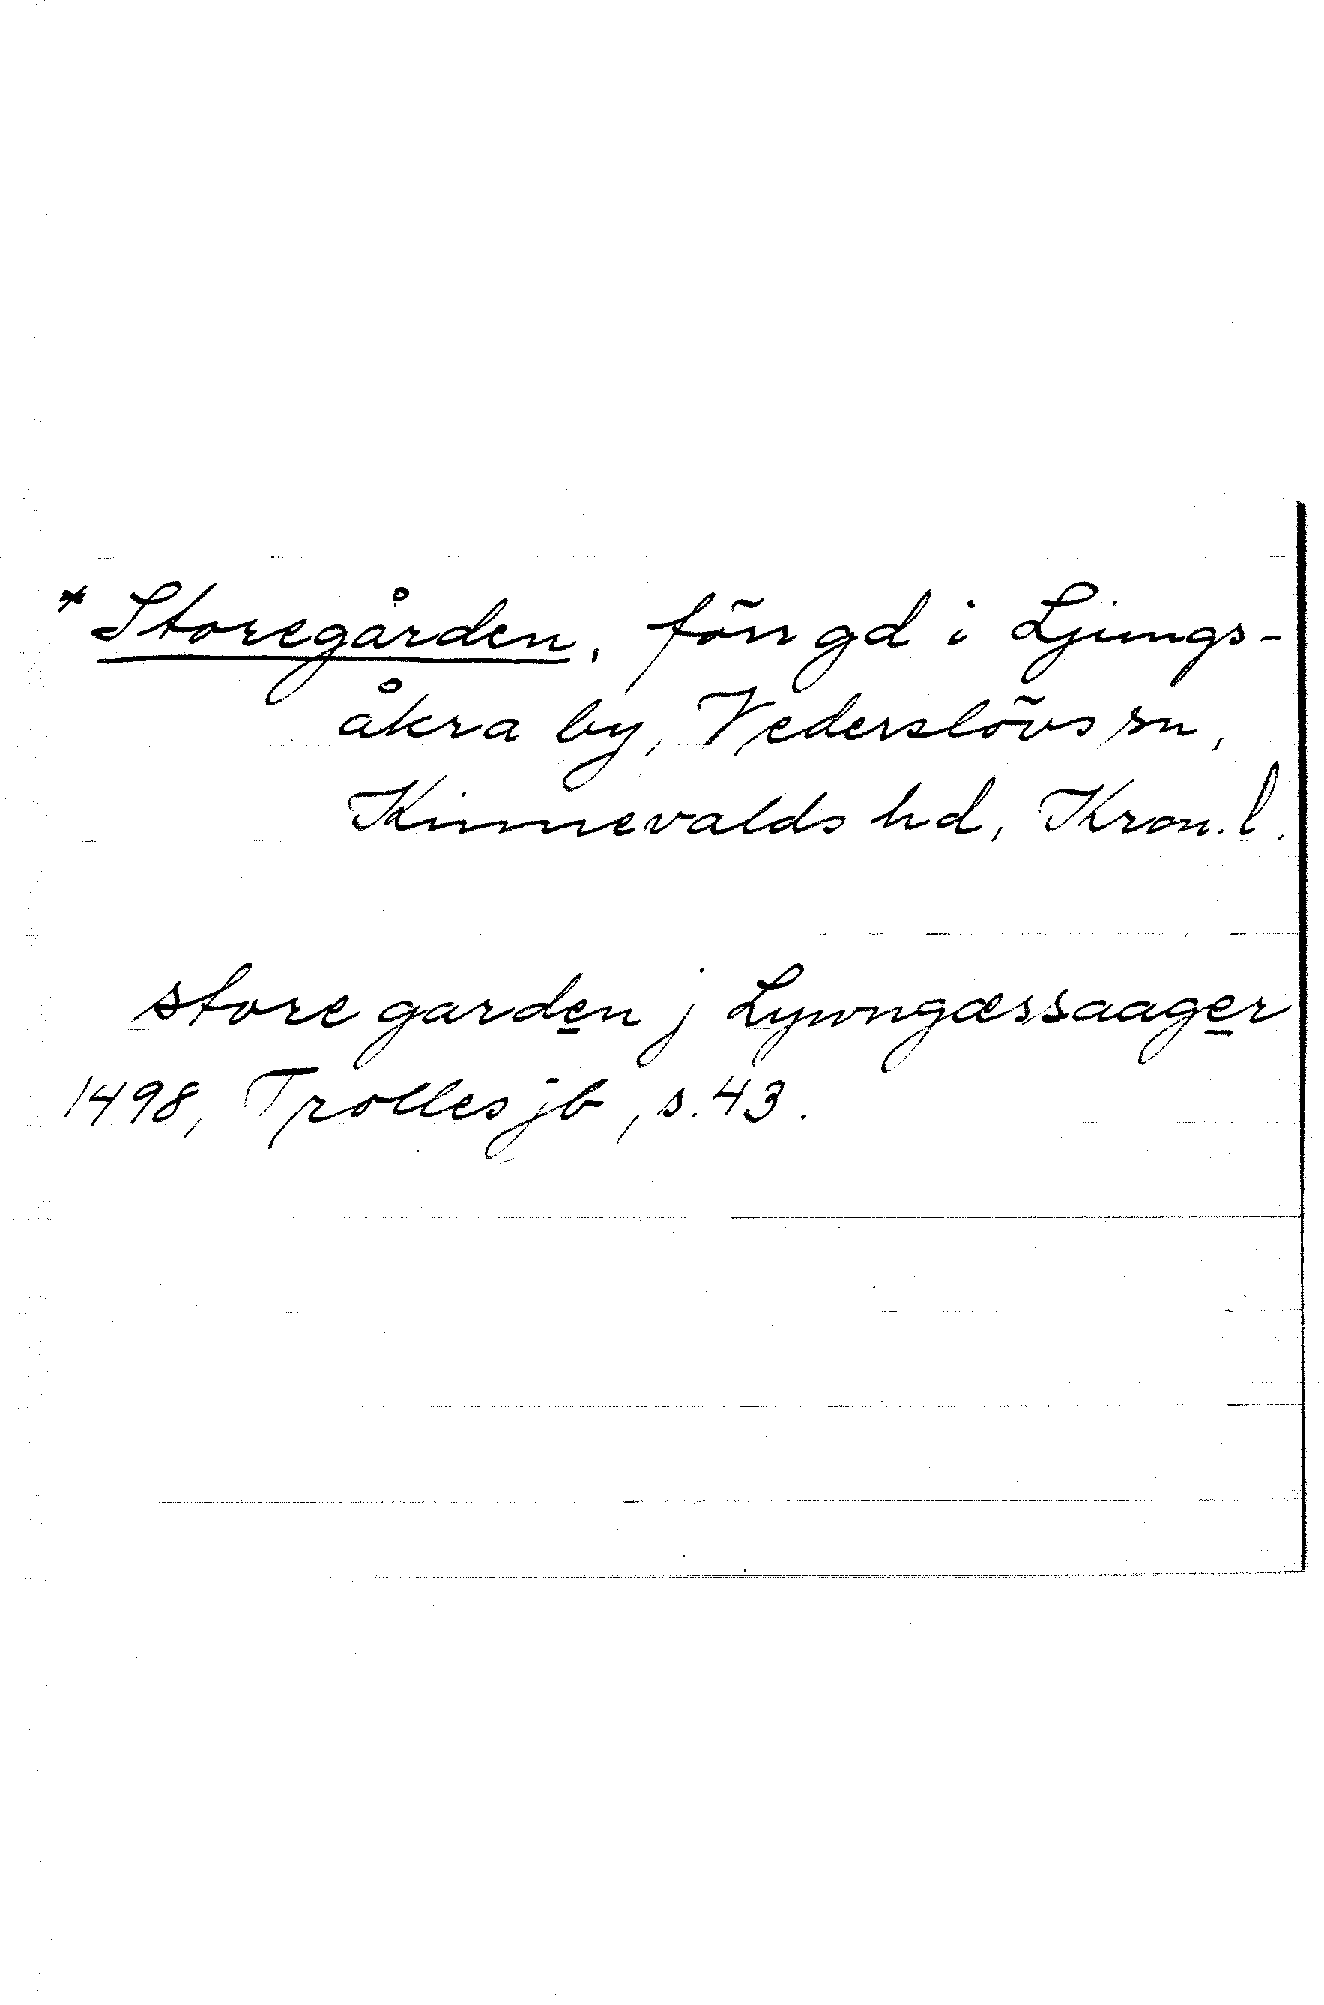 * Storegården, förr gd i Ljungs-
åkra by, Vederslövs sn,
Kinnevalds hd, Kron. l.
store garden j Lywngæssaager
1498, Trolles jb, s. 43.